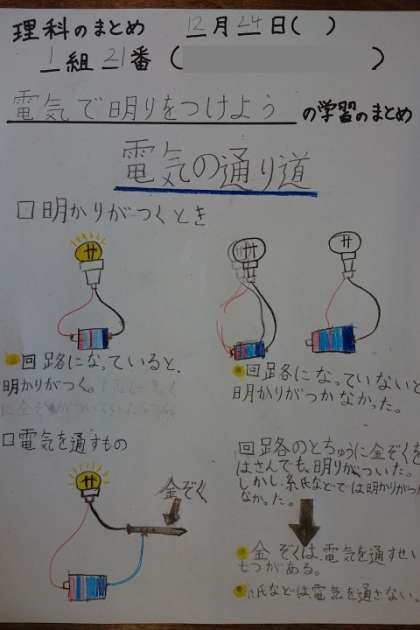 理科のまとめ 12月24日( )
1組21番 ( )
電気で明りをつけよう の学習のまとめ
電気の通り道
□明かりがつくとき
回路になっていると、
明かりがつく。
回路になっていないと
明かりがつかなかった。
□電気を通すもの
金ぞく
回路のとちゅうに金ぞくを
はさんでも、明りがついた。
しかし、紙などでは明かりがつか
なかった。
金ぞくは、電気を通すせい
しつがある。
紙などは電気を通さない。